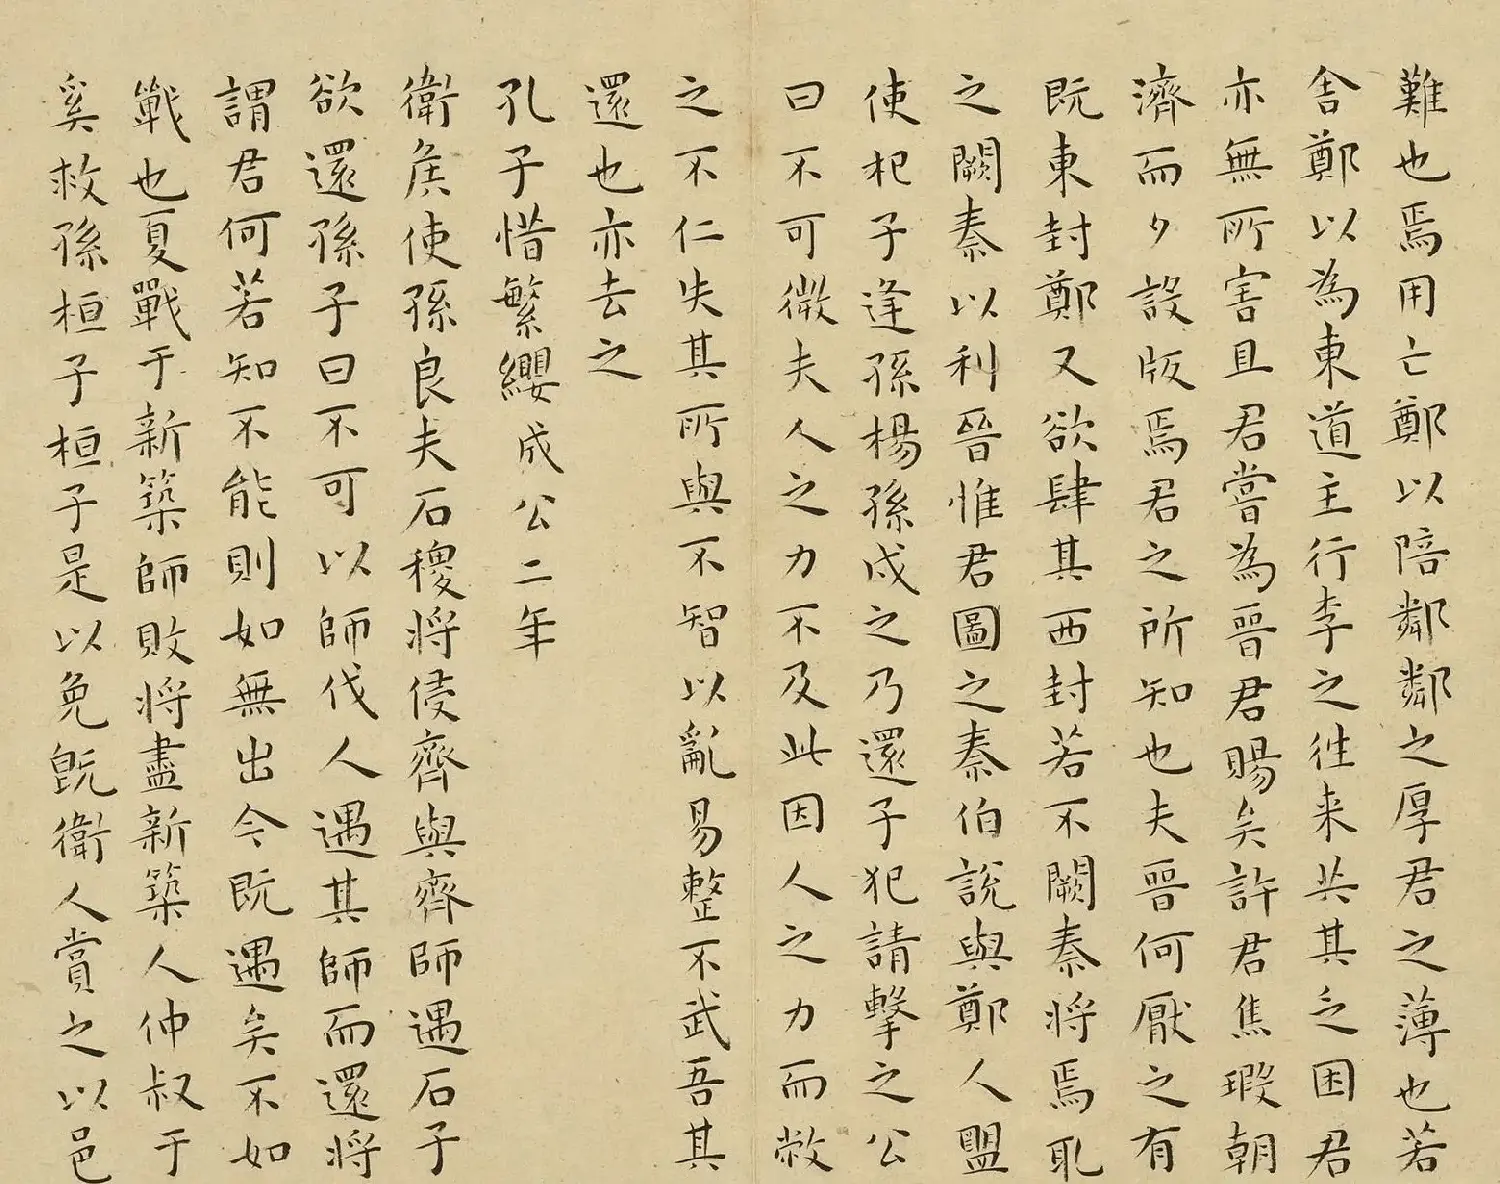 難也焉用亡鄭以陪鄰鄰之厚君之薄也若
舍鄭以為東道主行李之往来共其乏困君
亦無所害且君嘗為晉君賜矣許君焦瑕朝
濟而夕設版焉君之所知也夫晉何厭之有
既東封鄭又欲肆其西封若不闕秦將焉取
之闕秦以利晉惟君圖之秦伯說與鄭人盟
使杞子逢孫楊孫戍之乃還子犯請擊之公
曰不可微夫人之力不及此因人之力而敝
之不仁失其所與不智以亂易整不武吾其
還也亦去之
孔子惜繁纓成公二年
衛侯使孫良夫石稷將侵齊與齊師遇石子
欲還孫子曰不可以師伐人遇其師而還將
謂君何若知不能則如無出今既遇矣不如
戰也夏戰于新築師敗將盡新築人仲叔于
奚救孫桓子桓子是以免既衛人賞之以邑